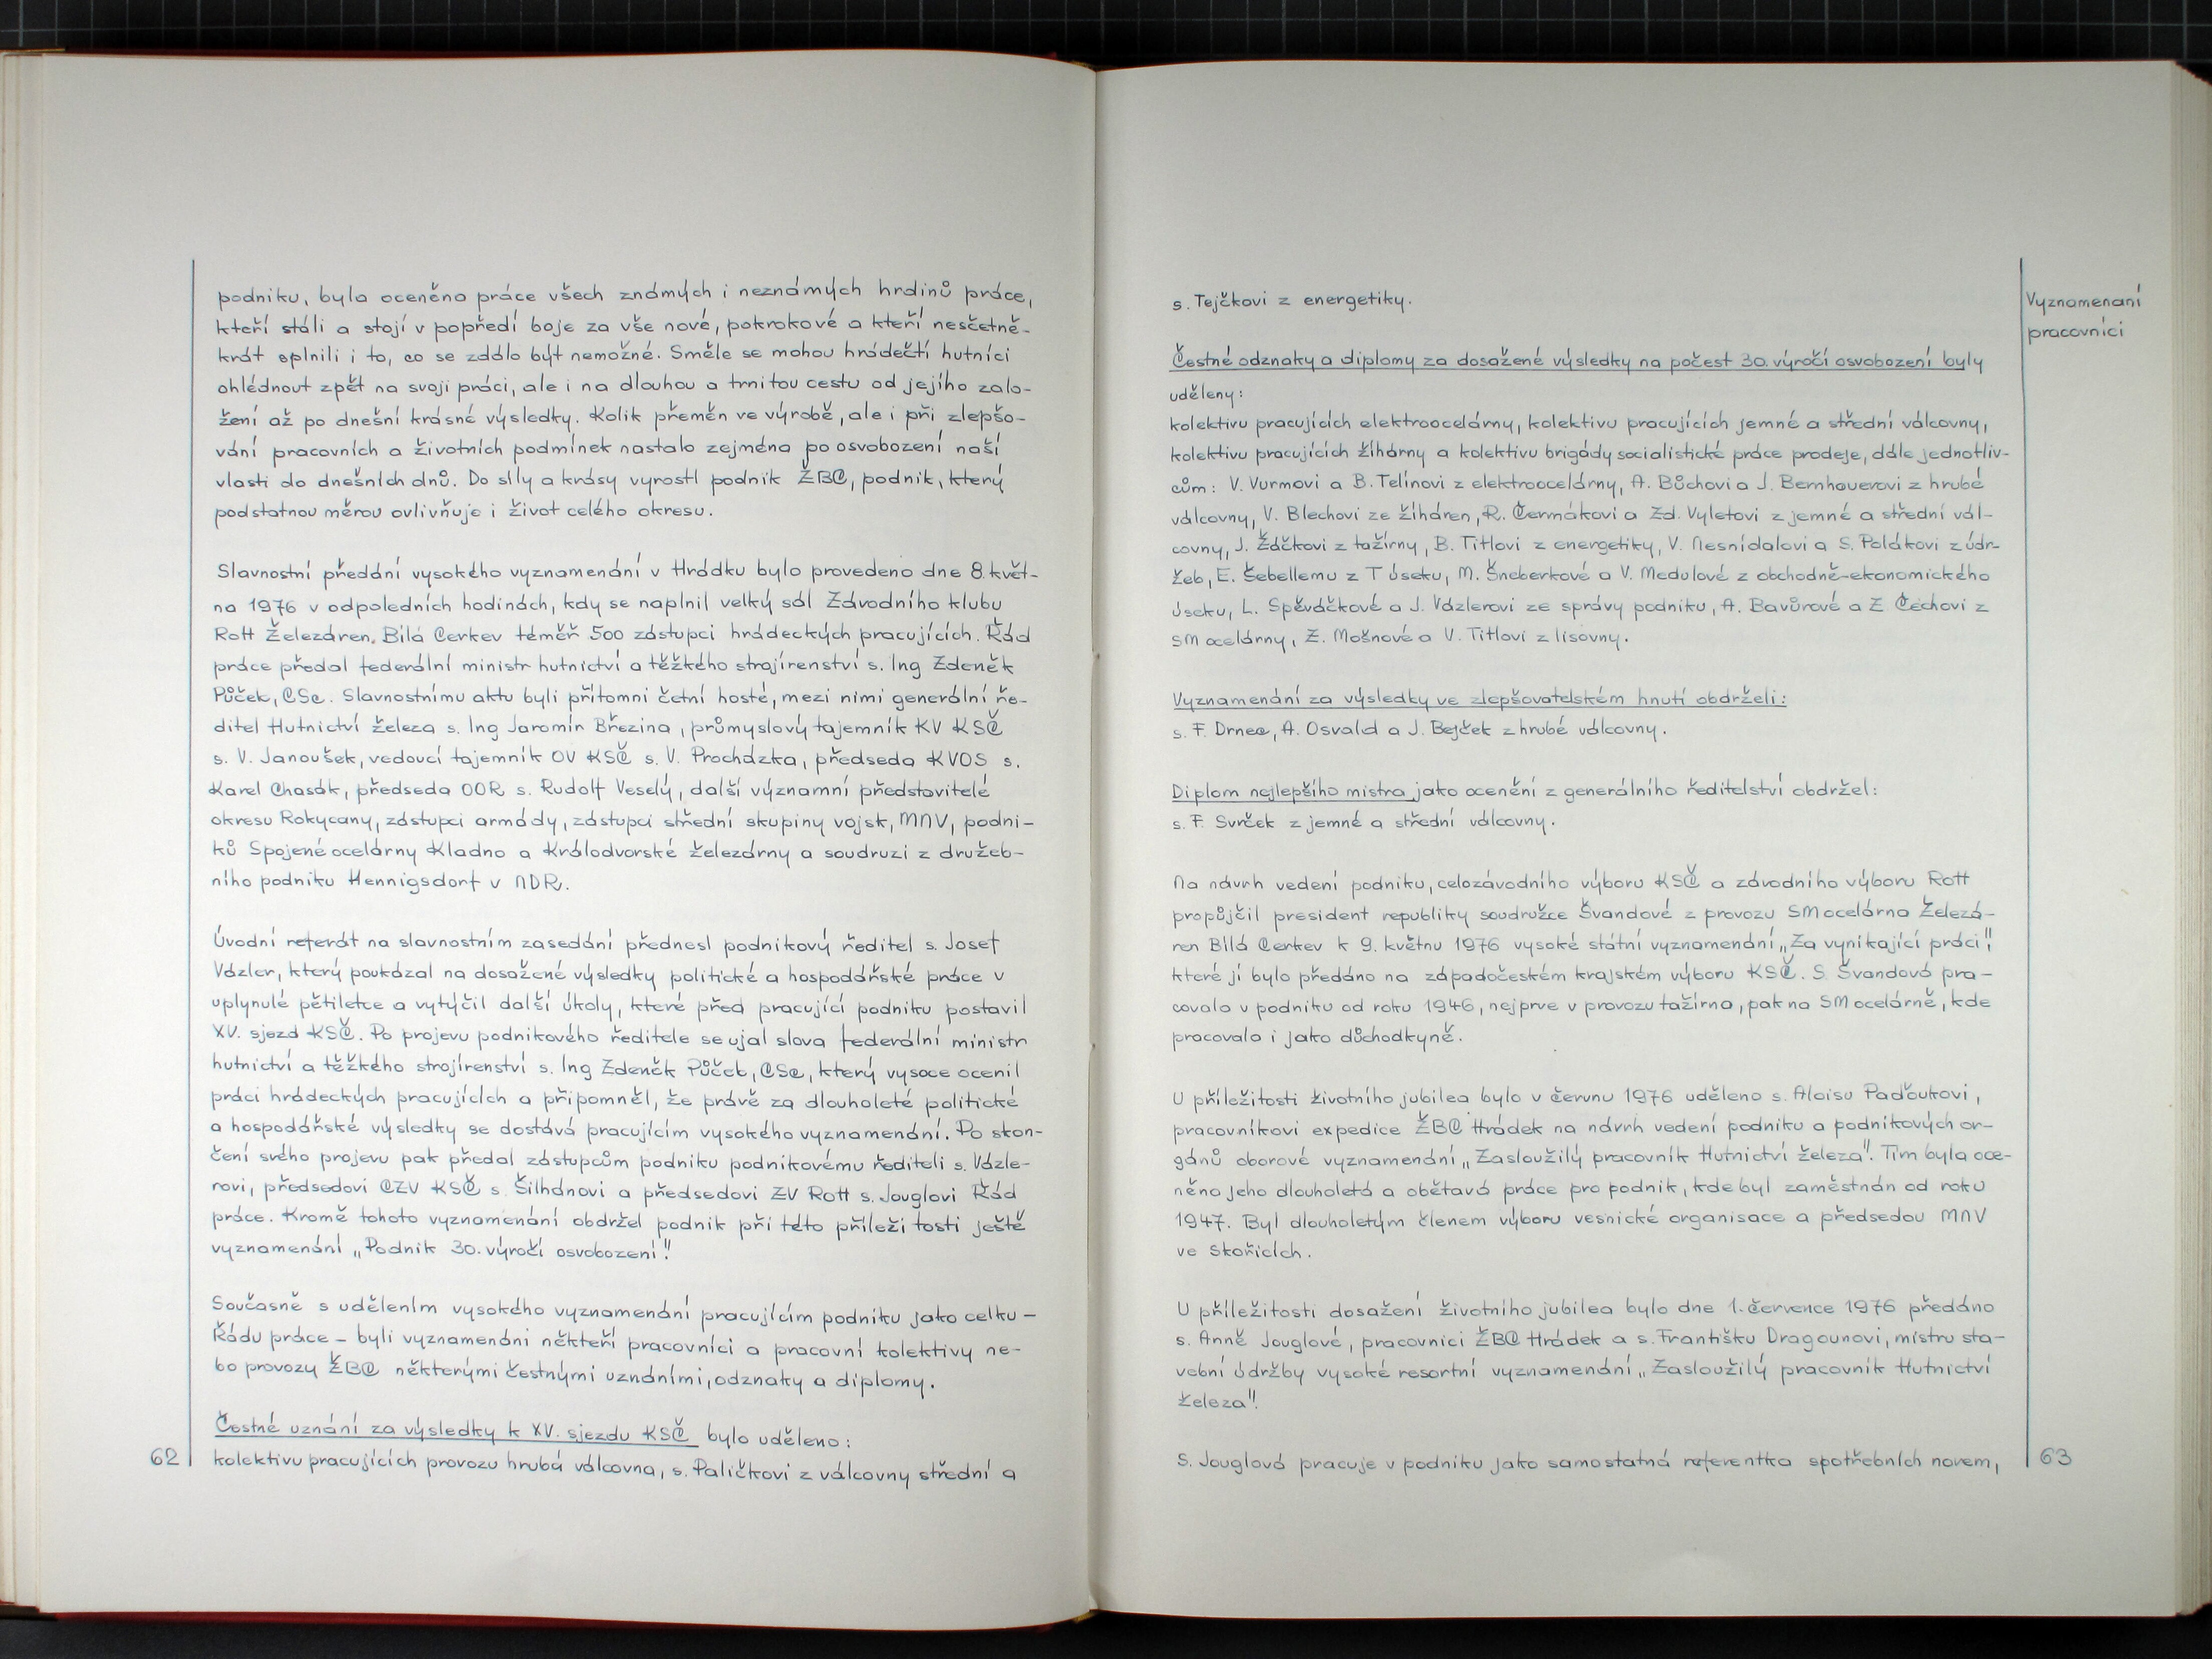 podniku, byla oceněna práce všech známých i neznámých hrdinů práce,
kteří stáli a stojí v popředí boje za vše nové, pokrokové a kteří nesčetně-
krát splnili i to, co se zdálo být nemožné. Směle se mohou hrádečtí hutníci
ohlédnout zpět na svoji práci, ale i na dlouhou a trnitou cestu od jejího zalo-
žení až po dnešní krásné výsledky. Kolik přeměn ve výrobě, ale i při zlepšo-
vání pracovních a životních podmínek nastalo zejména po osvobození naší
vlasti do dnešních dnů. Do síly a krásy vyrostl podnik ŽBC, podnik, který
podstatnou měrou ovlivňuje i život celého okresu.
Slavnostní předání vysokého vyznamenání v Hrádku bylo provedeno dne 8. květ-
na 1976 v odpoledních hodinách, kdy se naplnil velký sál Závodního klubu
RoH Železáren. Bílá Cerkev téměř 500 zástupci hrádeckých pracujících. Řád
práce předal federální ministr hutnictví a těžkého strojírenství s. Ing Zdeněk
Půček, CSc. Slavnostnímu aktu byli přítomni četní hosté, mezi nimi generální ře-
ditel Hutnictví železa s. Ing Jaromín Březina, průmyslový tajemník KV KSČ
s. V. Janoušek, vedoucí tajemník OV KSČ s. V. Procházka, předseda KVOS s.
Karel Chasák, předseda OOR s. Rudolf Veselý, další významní představitelé
okresu Rokycany, zástupci armády, zástupci střední skupiny vojsk, MNV, podni-
ků Spojené ocelárny Kladno a Králodvorské železárny a soudruzi z družeb-
ního podniku Hennigsdorf v NDR.
Úvodní referát na slavnostním zasedání přednesl podnikový ředitel s. Josef
Vázler, který poukázal na dosažené výsledky politické a hospodářské práce v
uplynulé pětiletce a vytýčil další úkoly, které před pracující podniku postavil
XV. sjezd KSČ. Po projevu podnikového ředitele se ujal slova federální ministr
hutnictví a těžkého strojírenství s. Ing Zdeněk Půček, CSc, který vysoce ocenil
práci hrádeckých pracujících a připomněl, že právě za dlouholeté politické
a hospodářské výsledky se dostává pracujícím vysokého vyznamenání. Po skon-
čení svého projevu pak předal zástupcům podniku podnikovému řediteli s. Vázle-
rovi, předsedovi CZV KSČ s. Šilhánovi a předsedovi ZV RoH s. Jouglovi Řád
práce. Kromě tohoto vyznamenání obdržel podnik při této příleži tosti ještě
vyznamenání „Podnik 30. výročí osvobození".
Současně s udělením vysokého vyznamenání pracujícím podniku jako celku –
Řádu práce – byli vyznamenáni někteří pracovníci a pracovní kolektivy ne-
bo provozy ŽBC některými čestnými uznáními, odznaky a diplomy.
Čestné uznání za výsledky k XV. sjezdu KSČ bylo uděleno:
kolektivu pracujících provozu hrubá válcovna, s. Paličkovi z válcovny střední a
62
Vyznamenaní
pracovníci
s. Tejčkovi z energetiky.
Čestné odznaky a diplomy za dosažené výsledky na počest 30. výročí osvobození byly
uděleny:
kolektivu pracujících elektroocelárny, kolektivu pracujících jemné a střední válcovny,
kolektivu pracujících žíhárny a kolektivu brigády socialistické práce prodeje, dále jednotliv-
cům: V. Vurmovi a B. Telínovi z elektroocelárny, A. Bůchovi a J. Bernhauerovi z hrubé
válcovny, V. Blechovi ze žíháren, R. Čermákovi a Zd. Vyletovi z jemné a střední vál-
covny, J. Žáčkovi z tažírny, B. Titlovi z energetiky, V. Nesnídalovi a S. Polákovi z údr-
žeb, E. Šebellemu z T úseku, M. Šneberkové a V. Medulové z obchodně-ekonomického
úseku, L. Spěváčkové a J. Vázlerovi ze správy podniku, A. Bavůrové a Z Čechovi z
SM ocelárny, Z. Mošnové a V. Titlovi z lisovny.
Vyznamenání za výsledky ve zlepšovatelském hnutí obdrželi:
s. F. Drnec, A. Osvald a J. Bejček z hrubé válcovny.
Diplom nejlepšího mistra jako ocenění z generálního ředitelství obdržel:
s. F. Svrček z jemné a střední válcovny.
Na návrh vedení podniku, celozávodního výboru KSČ a závodního výboru RoH
propůjčil president republiky soudružce Švandové z provozu SM ocelárna Železá-
ren Bílá Cerkev k 9. květnu 1976 vysoké státní vyznamenání „Za vynikající práci",
které jí bylo předáno na západočeském krajském výboru KSČ. S. Švandová pra-
covala v podniku od roku 1946, nejprve v provozu tažírna, pak na SM ocelárně, kde
pracovala i jako důchodkyně.
U příležitosti životního jubilea bylo v červnu 1976 uděleno s. Aloisu Paďoukovi,
pracovníkovi expedice ŽBC Hrádek na návrh vedení podniku a podnikových or-
gánů oborové vyznamenání „Zasloužilý pracovník Hutnictví železa". Tím byla oce-
něna jeho dlouholetá a obětavá práce pro podnik, kde byl zaměstnán od roku
1947. Byl dlouholetým členem výboru vesnické organisace a předsedou MNV
ve Skořicích.
U příležitosti dosažení životního jubilea bylo dne 1. července 1976 předáno
s. Anně Jouglové, pracovnici ŽBC Hrádek a s. Františku Dragounovi, mistru sta-
vební údržby vysoké resortní vyznamenání „Zasloužilý pracovník Hutnictví
železa".
S. Jouglová pracuje v podniku jako samostatná referentka spotřebních norem,
63